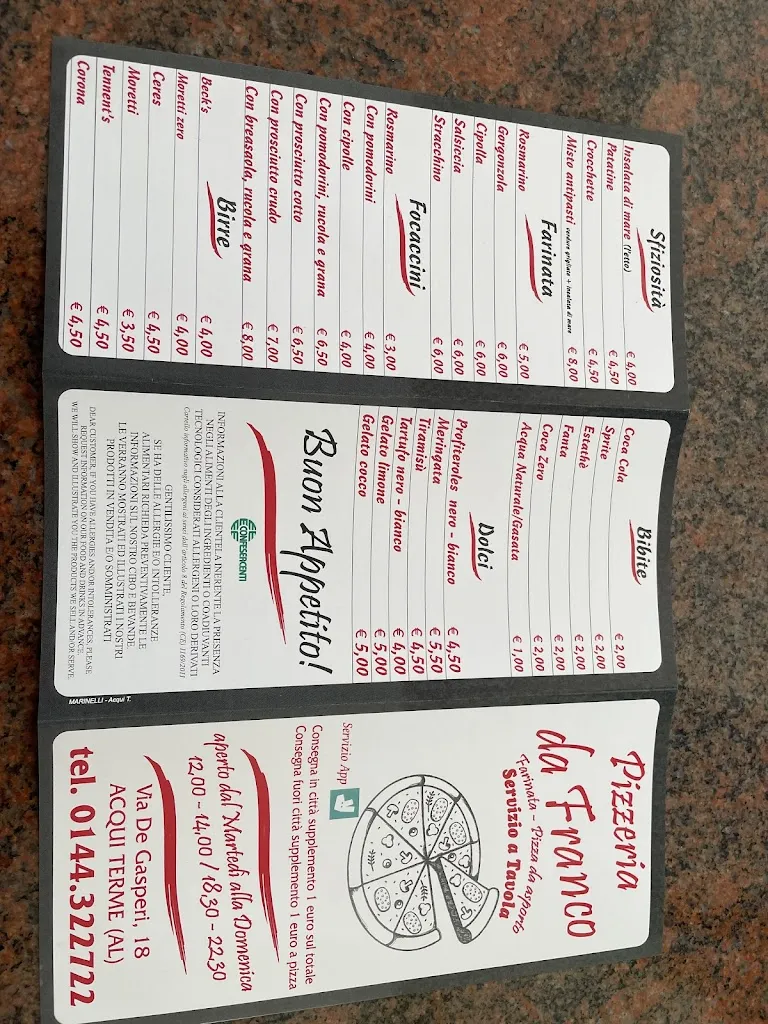 Sfiziosità
Insalata di mare (l'etto) € 4,00
Patatine € 4,50
Crocchette € 4,50
Misto antipasti verdure grigliate + insalata di mare € 8,00
Farinata
Rosmarino € 5,00
Gorgonzola € 6,00
Cipolla € 6,00
Salsiccia € 6,00
Stracchino € 6,00
Focaccini
Rosmarino € 3,00
Con pomodorini € 4,00
Con cipolle € 4,00
Con pomodorini, rucola e grana € 6,50
Con prosciutto cotto € 6,50
Con prosciutto crudo € 7,00
Con breasaola, rucola e grana € 8,00
Birre
Beck's € 4,00
Moretti zero € 4,00
Ceres € 4,50
Moretti € 3,50
Tennent's € 4,50
Corona € 4,50
Bibite
Coca Cola € 2,00
Sprite € 2,00
Estathè € 2,00
Fanta € 2,00
Coca Zero € 2,00
Acqua Naturale/Gasata € 1,00
Dolci
Profiteroles nero - bianco € 4,50
Meringata € 5,50
Tiramisù € 4,50
Tartufo nero - bianco € 4,00
Gelato limone € 5,00
Gelato cocco € 5,00
Buon Appetito!
CONFESERCENTI
INFORMAZIONI ALLA CLIENTELA INERENTE LA PRESENZA
NEGLI ALIMENTI DEGLI INGREDIENTI O COADIUVANTI
TECNOLOGICI CONSIDERATI ALLERGENI O LORO DERIVATI
Cartello informativo sugli allergeni ai sensi dell'articolo 8 del Regolamento (CE) 1169/2011
GENTILISSIMO CLIENTE,
SE HA DELLE ALLERGIE E/O INTOLLERANZE
ALIMENTARI RICHIEDA PREVENTIVAMENTE LE
INFORMAZIONI SUL NOSTRO CIBO E BEVANDE.
LE VERRANNO MOSTRATI ED ILLUSTRATI I NOSTRI
PRODOTTI IN VENDITA E/O SOMMINISTRATI
DEAR CUSTOMER, IF YOU HAVE ALLERGIES AND/OR INTOLERANCES, PLEASE
REQUEST INFORMATION ON OUR FOOD AND DRINKS IN ADVANCE.
WE WILL SHOW AND ILLUSTRATE YOU THE PRODUCTS WE SELL AND/OR SERVE.
MARINELLI - Acqui T.
Pizzeria
da Franco
Farinata - Pizza da asporto
Servizio a Tavola
Servizio App
Consegna in città supplemento 1 euro sul totale
Consegna fuori città supplemento 1 euro a pizza
aperto dal Martedì alla Domenica
12,00 - 14,00 / 18,30 - 22,30
Via De Gasperi, 18
ACQUI TERME (AL)
tel. 0144.322722